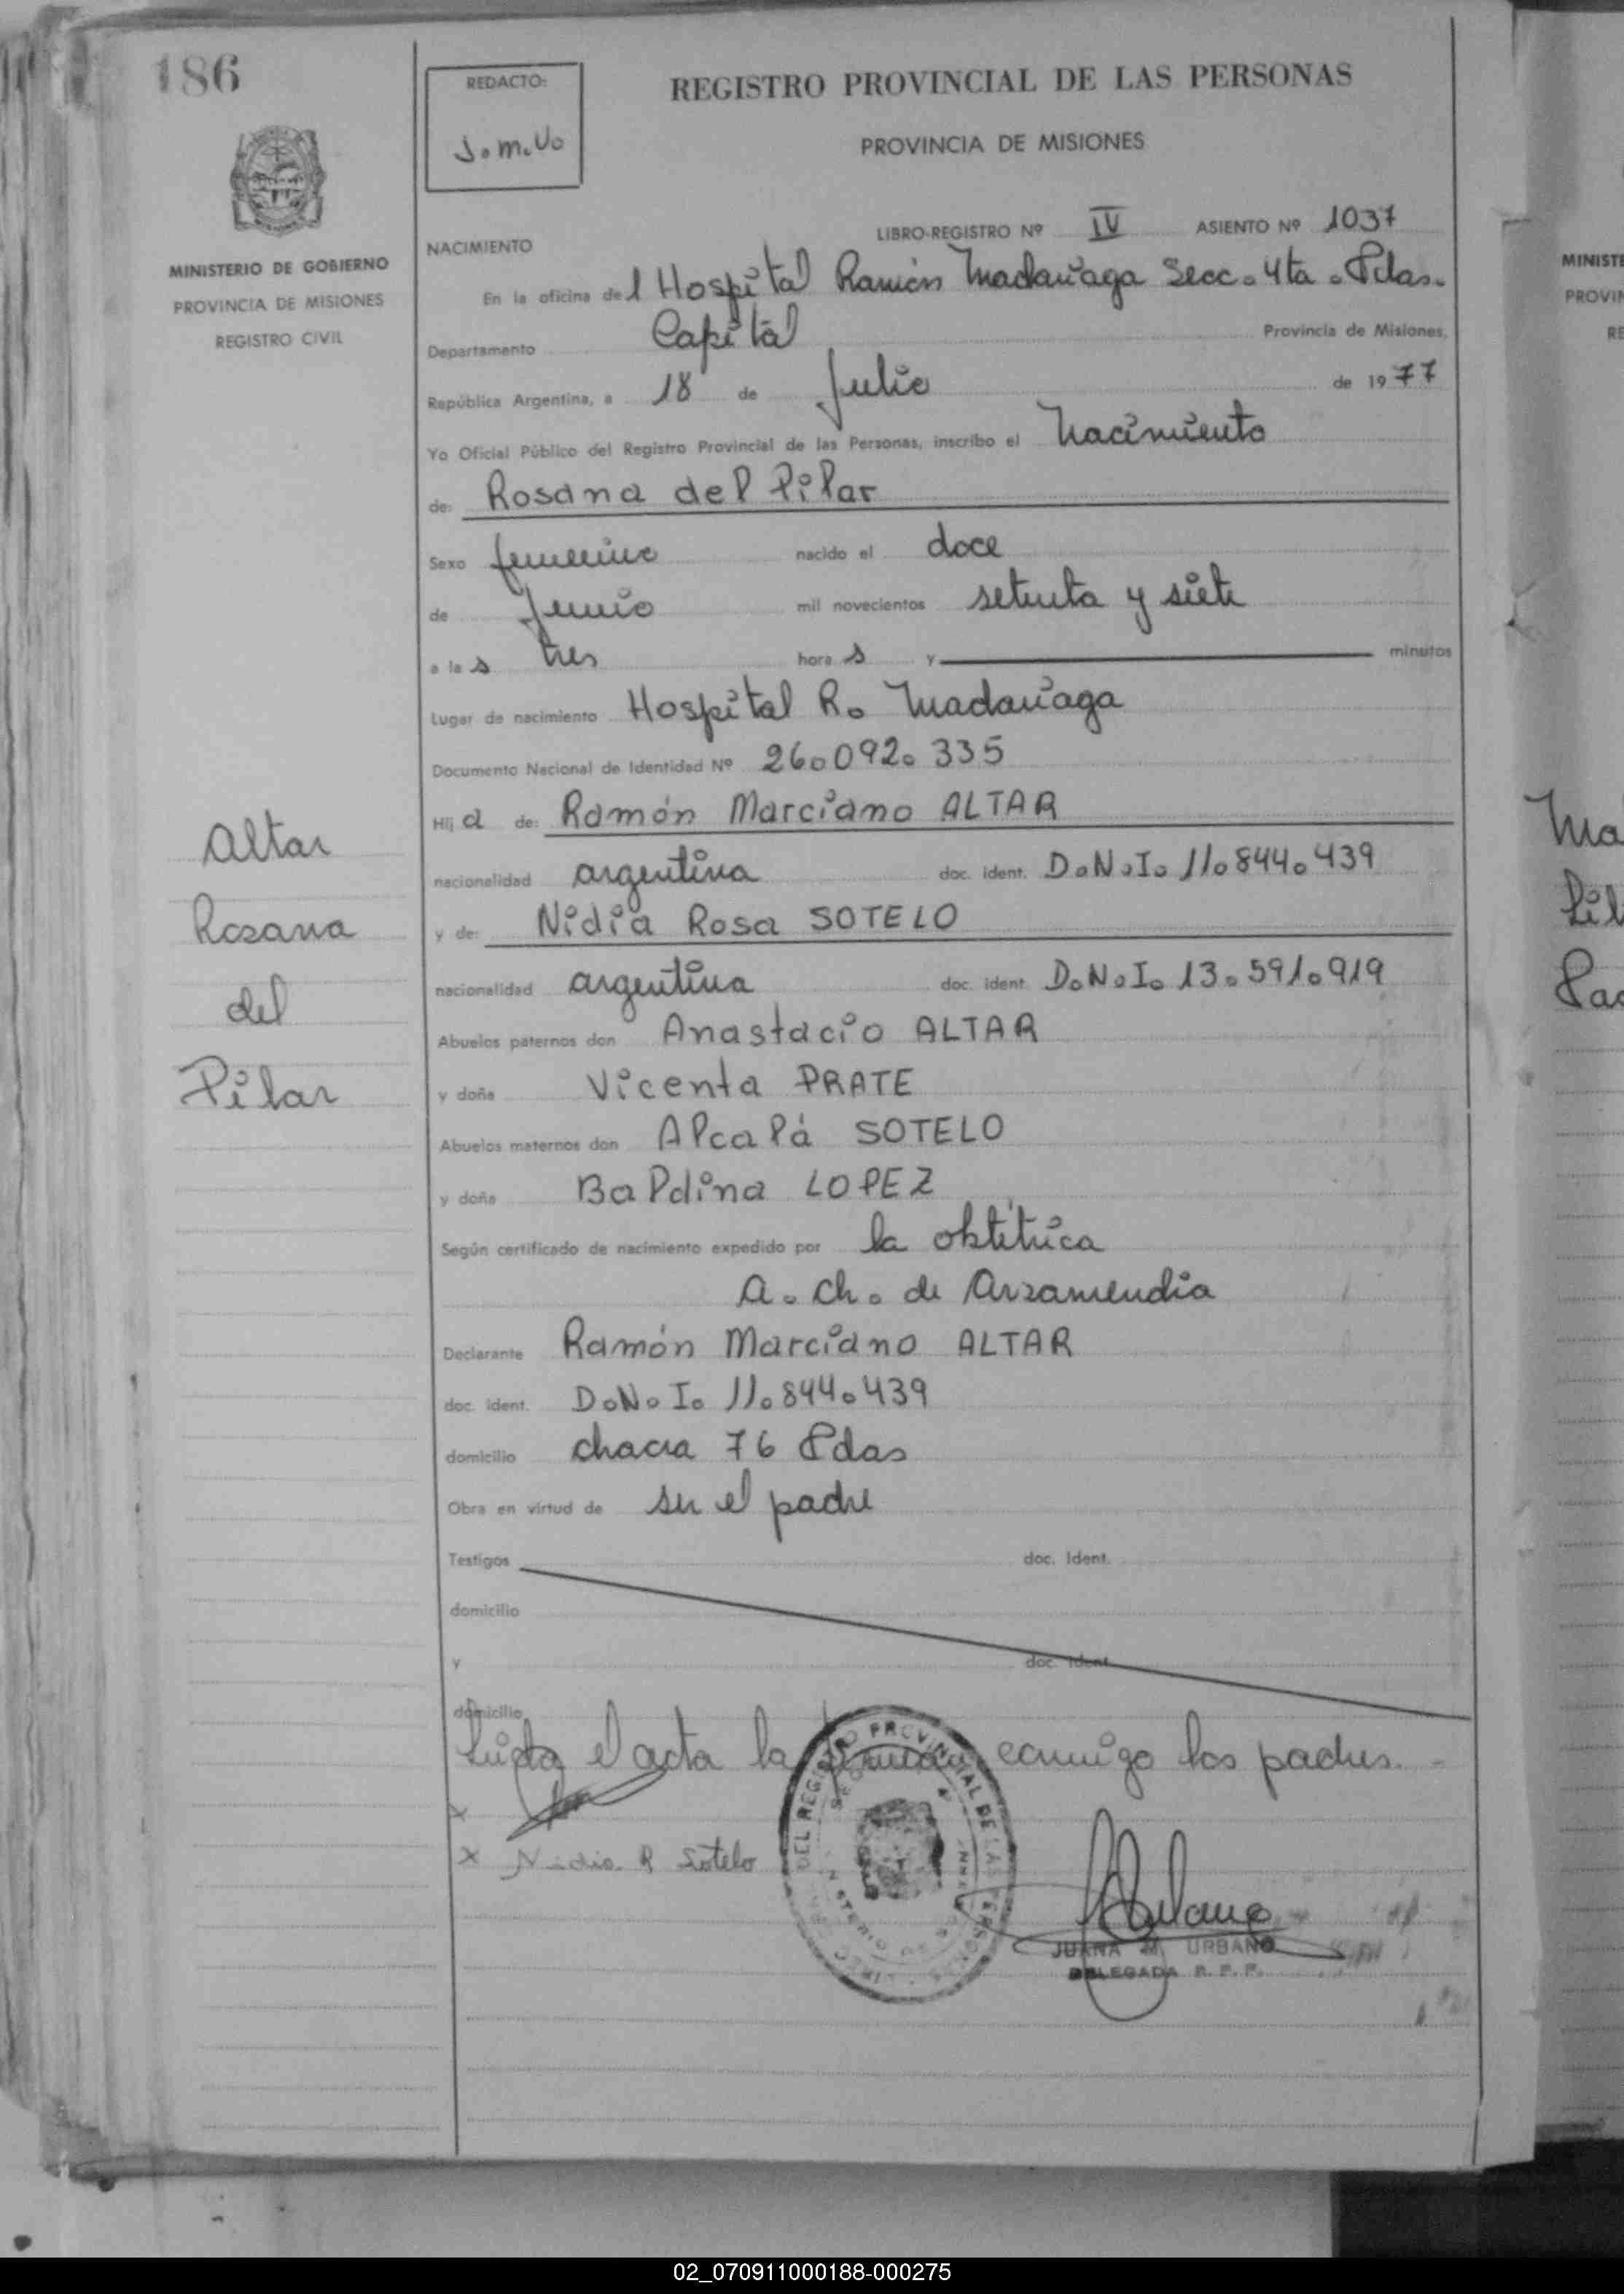 186
REDACTO:
J.M.U.
REGISTRO PROVINCIAL DE LAS PERSONAS
PROVINCIA DE MISIONES
MINISTERIO DE GOBIERNO
PROVINCIA DE MISIONES
REGISTRO CIVIL
LIBRO-REGISTRO Nº IV ASIENTO Nº 1037
NACIMIENTO
En la oficina del Hospital Ramón Madariaga Secc. 4ta. Pdas.
Departamento Capital Provincia de Misiones,
República Argentina, a 18 de Julio de 1977
Yo Oficial Público del Registro Provincial de las Personas, inscribo el Nacimiento
de: Rosana del Pilar
Sexo femenino nacido el doce
de Junio mil novecientos setenta y siete
a las tres horas y minutos
Lugar de nacimiento Hospital R. Madariaga
Documento Nacional de Identidad Nº 26.092.335
Hija de: Ramón Marciano ALTAR
nacionalidad argentina doc. ident. D.N.I. 11.844.439
y de: Nidia Rosa SOTELO
nacionalidad argentina doc. ident. D.N.I. 13.591.919
Abuelos paternos don Anastacio ALTAR
y doña Vicenta PRATE
Abuelos maternos don Alcalá SOTELO
y doña Baldina LOPEZ
Según certificado de nacimiento expedido por la obtétrica
A. Ch. de Arzamendia
Declarante Ramón Marciano ALTAR
doc. ident. D.N.I. 11.844.439
domicilio chacra 76 Pdas
Obra en virtud de ser el padre
Testigos doc. ident.
domicilio
y doc. ident.
domicilio
Leída el acta la firman conmigo los padres.-
x
x Nidia R Sotelo
Altar
Rosana
del
Pilar
DEL REGISTRO PROVINCIAL DE LAS PERSONAS
JUANA M. URBANO
DELEGADA R. P. P.
MINISTE
PROVIN
RE
Ma
Pil
Pas
02_070911000188-000275